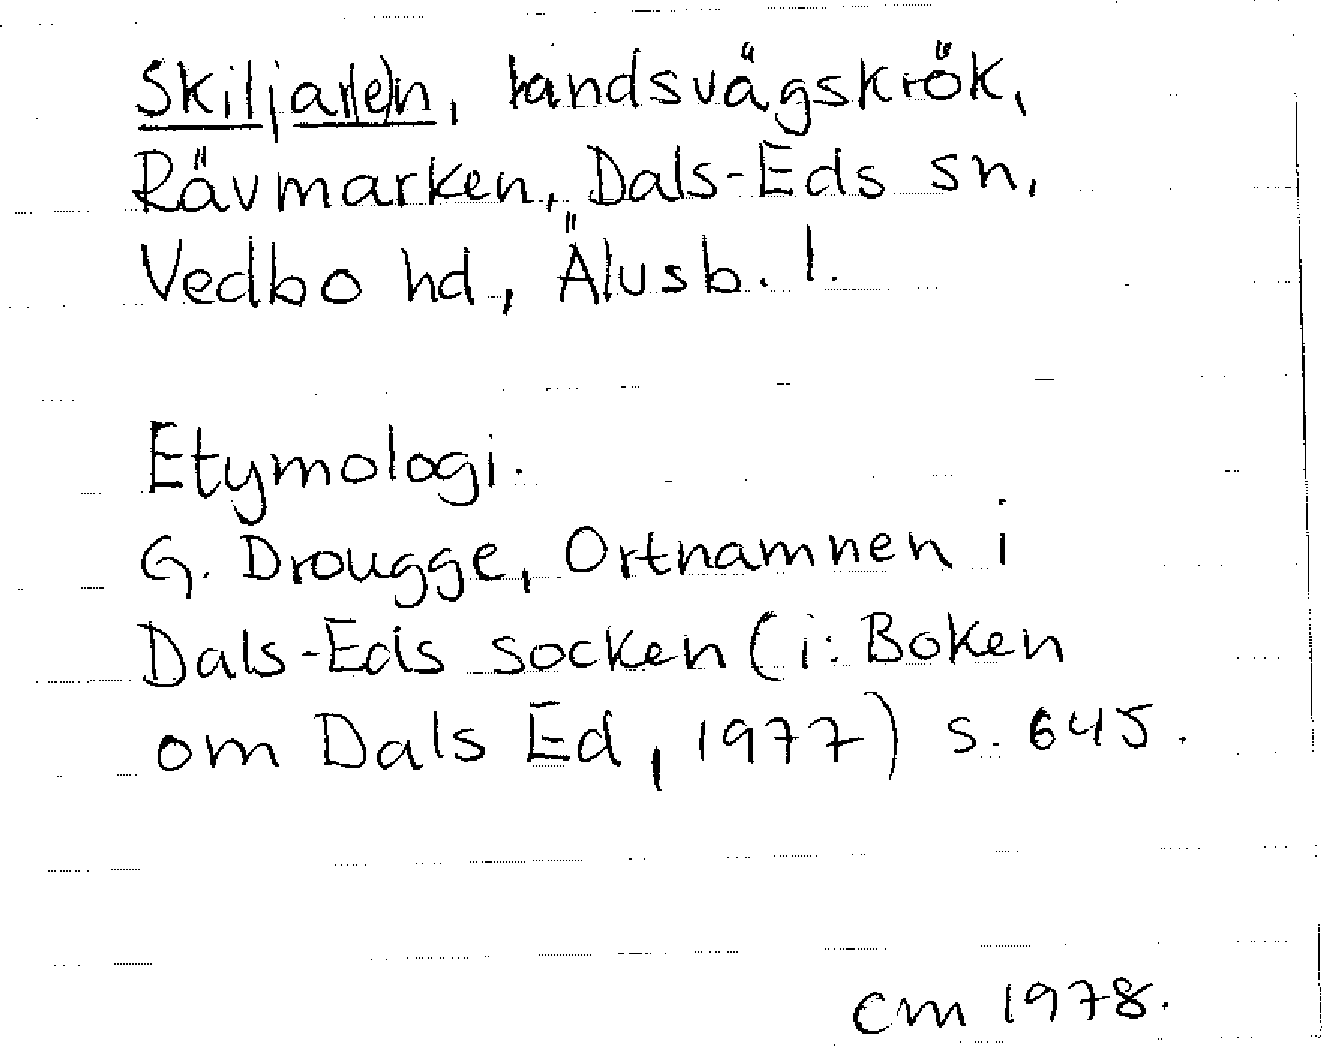 Skilja(r)(e)n, landsvägskrök,
Rävmarken, Dals-Eds sn,
Vedbo hd, Älvsb. l.
Etymologi.
G. Drougge, Ortnamnen i
Dals-Eds socken (i: Boken
om Dals Ed, 1977) s. 645.
cm 1978.